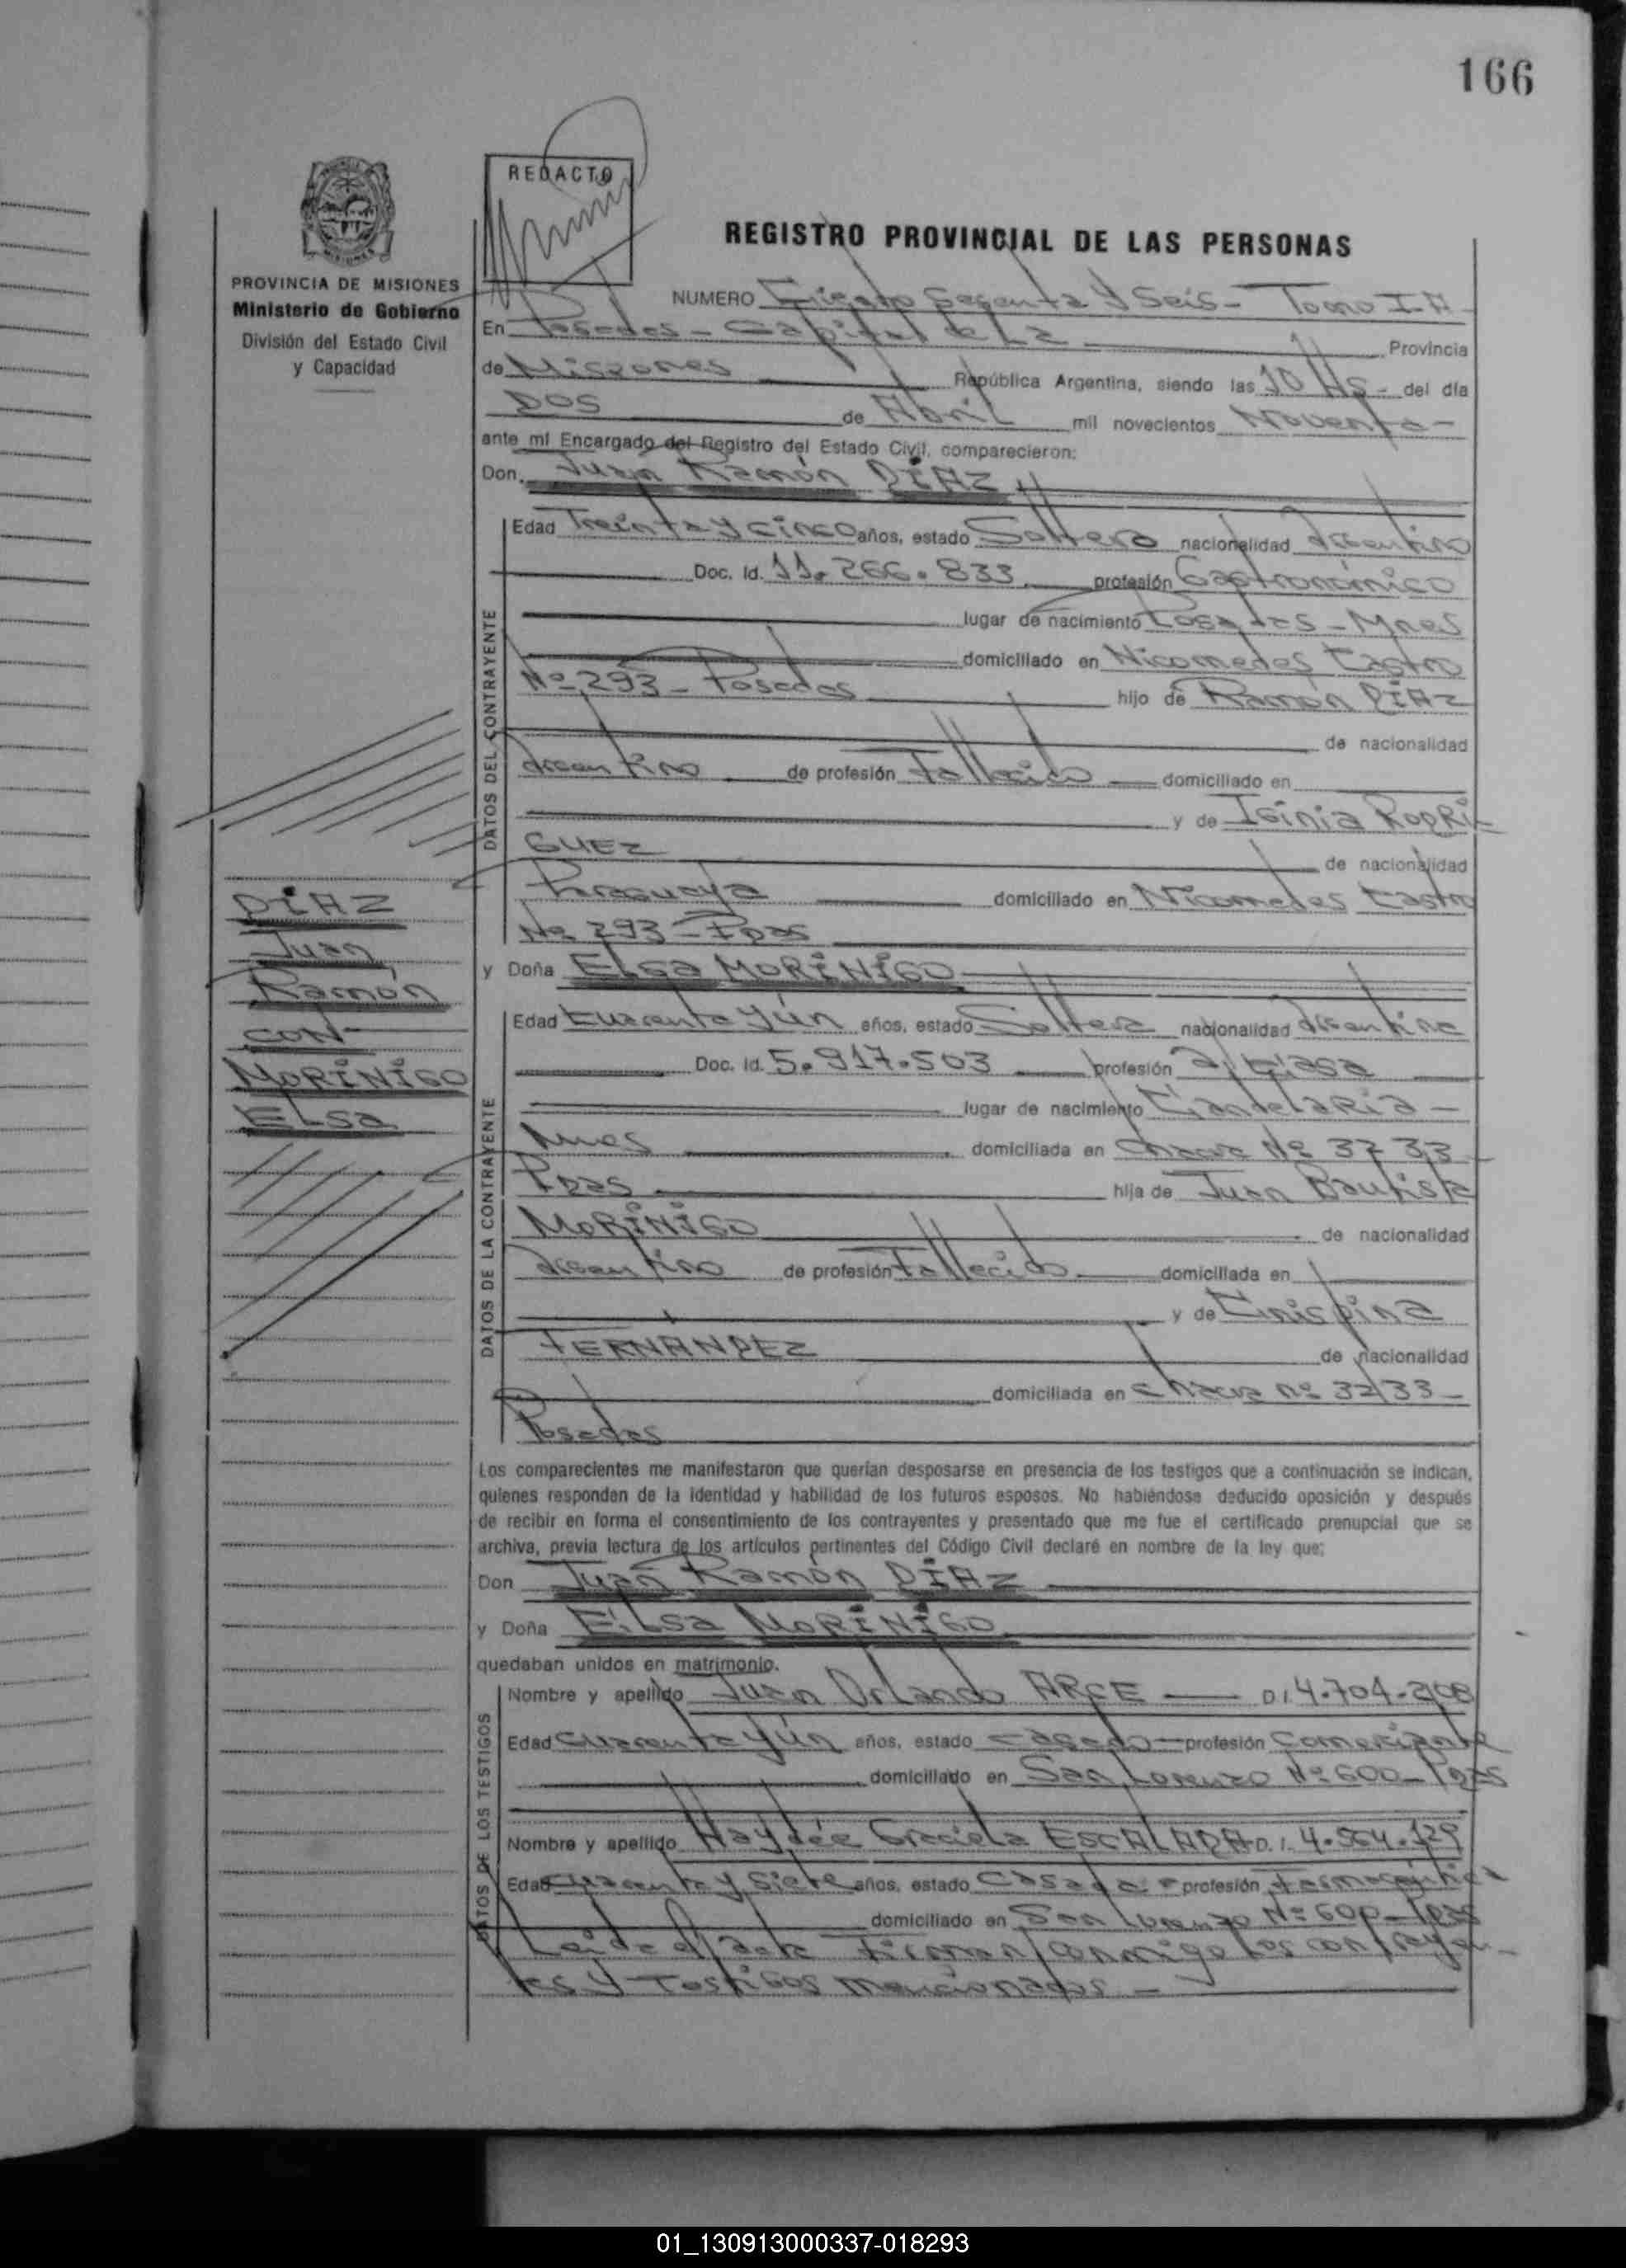 166
REDACTO
REGISTRO PROVINCIAL DE LAS PERSONAS
PROVINCIA DE MISIONES
Ministerio de Gobierno
División del Estado Civil
y Capacidad
NUMERO Ciento Sesenta y Seis - Tomo I A
En Posadas - Capital de La Provincia
de Misiones República Argentina, siendo las 10 Hs - del día
DOS de Abril mil novecientos Noventa -
ante mí Encargado del Registro del Estado Civil, comparecieron:
Don. Juan Ramón DÍAZ
DATOS DEL CONTRAYENTE
Edad Treinta y cinco años, estado Soltero nacionalidad Argentino
Doc. Id. 11.266.833 profesión Gastronómico
lugar de nacimiento Posadas - Mnes
domiciliado en Nicomedes Castro
Nº 293 - Posadas hijo de Ramón DÍAZ
de nacionalidad
Argentino de profesión Fallecido domiciliado en
y de Iginia RODRI-
GUEZ de nacionalidad
Paraguaya domiciliado en Nicomedes Castro
Nº 293 - Pdas
y Doña ELSA MORÍNIGO
DIAZ
Juan
Ramón
CON
MORÍNIGO
ELSA
DATOS DE LA CONTRAYENTE
Edad Cuarenta y ún años, estado Soltera nacionalidad Argentina
Doc. Id. 5.917.503 profesión a/ casa
lugar de nacimiento Candelaria -
Mnes domiciliada en Chacra Nº 32 33
Pdas hija de Juan Bautista
MORÍNIGO de nacionalidad
Argentino de profesión Fallecido domiciliada en
y de Crispina
FERNANDEZ de nacionalidad
domiciliada en Chacra nº 32/33 -
Posadas
Los comparecientes me manifestaron que querían desposarse en presencia de los testigos que a continuación se indican,
quienes responden de la identidad y habilidad de los futuros esposos. No habiéndose deducido oposición y después
de recibir en forma el consentimiento de los contrayentes y presentado que me fue el certificado prenupcial que se
archiva, previa lectura de los artículos pertinentes del Código Civil declaré en nombre de la ley que:
Don Juan Ramón DÍAZ
y Doña ELSA MORÍNIGO
quedaban unidos en matrimonio.
DATOS DE LOS TESTIGOS
Nombre y apellido Juan Orlando ARCE D.I 4.704.208
Edad Cuarenta y ún años, estado Casado profesión Comerciante
domiciliado en San Lorenzo Nº 600 - Pdas
Nombre y apellido Haydée Graciela ESCALADA D.I. 4.564.129
Edad Cuarenta y Siete años, estado Casada - profesión Farmacéutica
domiciliado en San Lorenzo Nº 600 - Pdas
Leida el acta Firman conmigo los contrayen-
tes y Testigos mencionados -
01_130913000337-018293